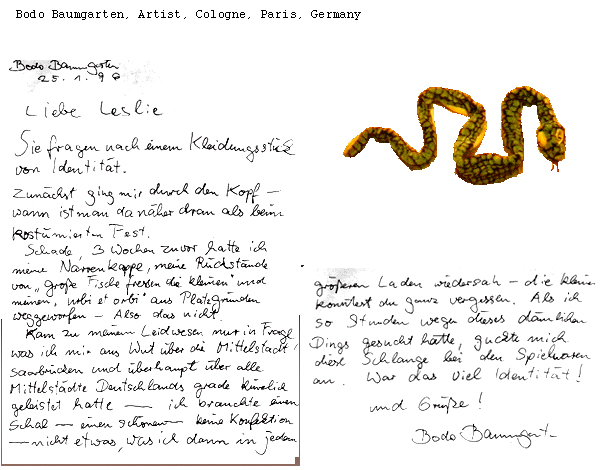 Bodo Baumgarten, Artist, Cologne, Paris, Germany
Bodo Baumgarten
25.1.98
Liebe Leslie
Sie fragen nach einem Kleidungsstück
von Identität.
Zunächst ging mir durch den Kopf —
wann ist man da näher dran als beim
kostümierten Fest.
Schade, 3 Wochen zuvor hatte ich
meine Narrenkappe, meine Rückstände
von "große Fische fressen die kleinen" und
meinen "urbi et orbi" aus Platzgründen
weggeworfen — Also das nicht.
Kam zu meinem Leidwesen nur in Frage
was ich mir aus Wut über die Mittelstadt
Saarbrücken und überhaupt über alle
Mittelstädte Deutschlands grade kürzlich
geleistet hatte — ich brauchte einen
Schal — einen schönen — keine Konfektion
— nicht etwas, was ich dann in jedem
größeren Laden wiedersah — die kleinen
konntest du ganz vergessen. Als ich
so Stunden wegen dieses dämlichen
Dings gesucht hatte, guckte mich
diese Schlange bei den Spielwaren
an. War das viel Identität!
und Grüße!
Bodo Baumgart